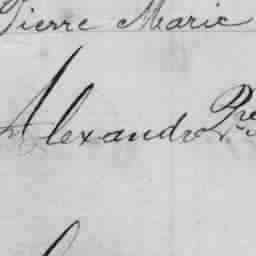 Pierre Marie
Alexandre Pre